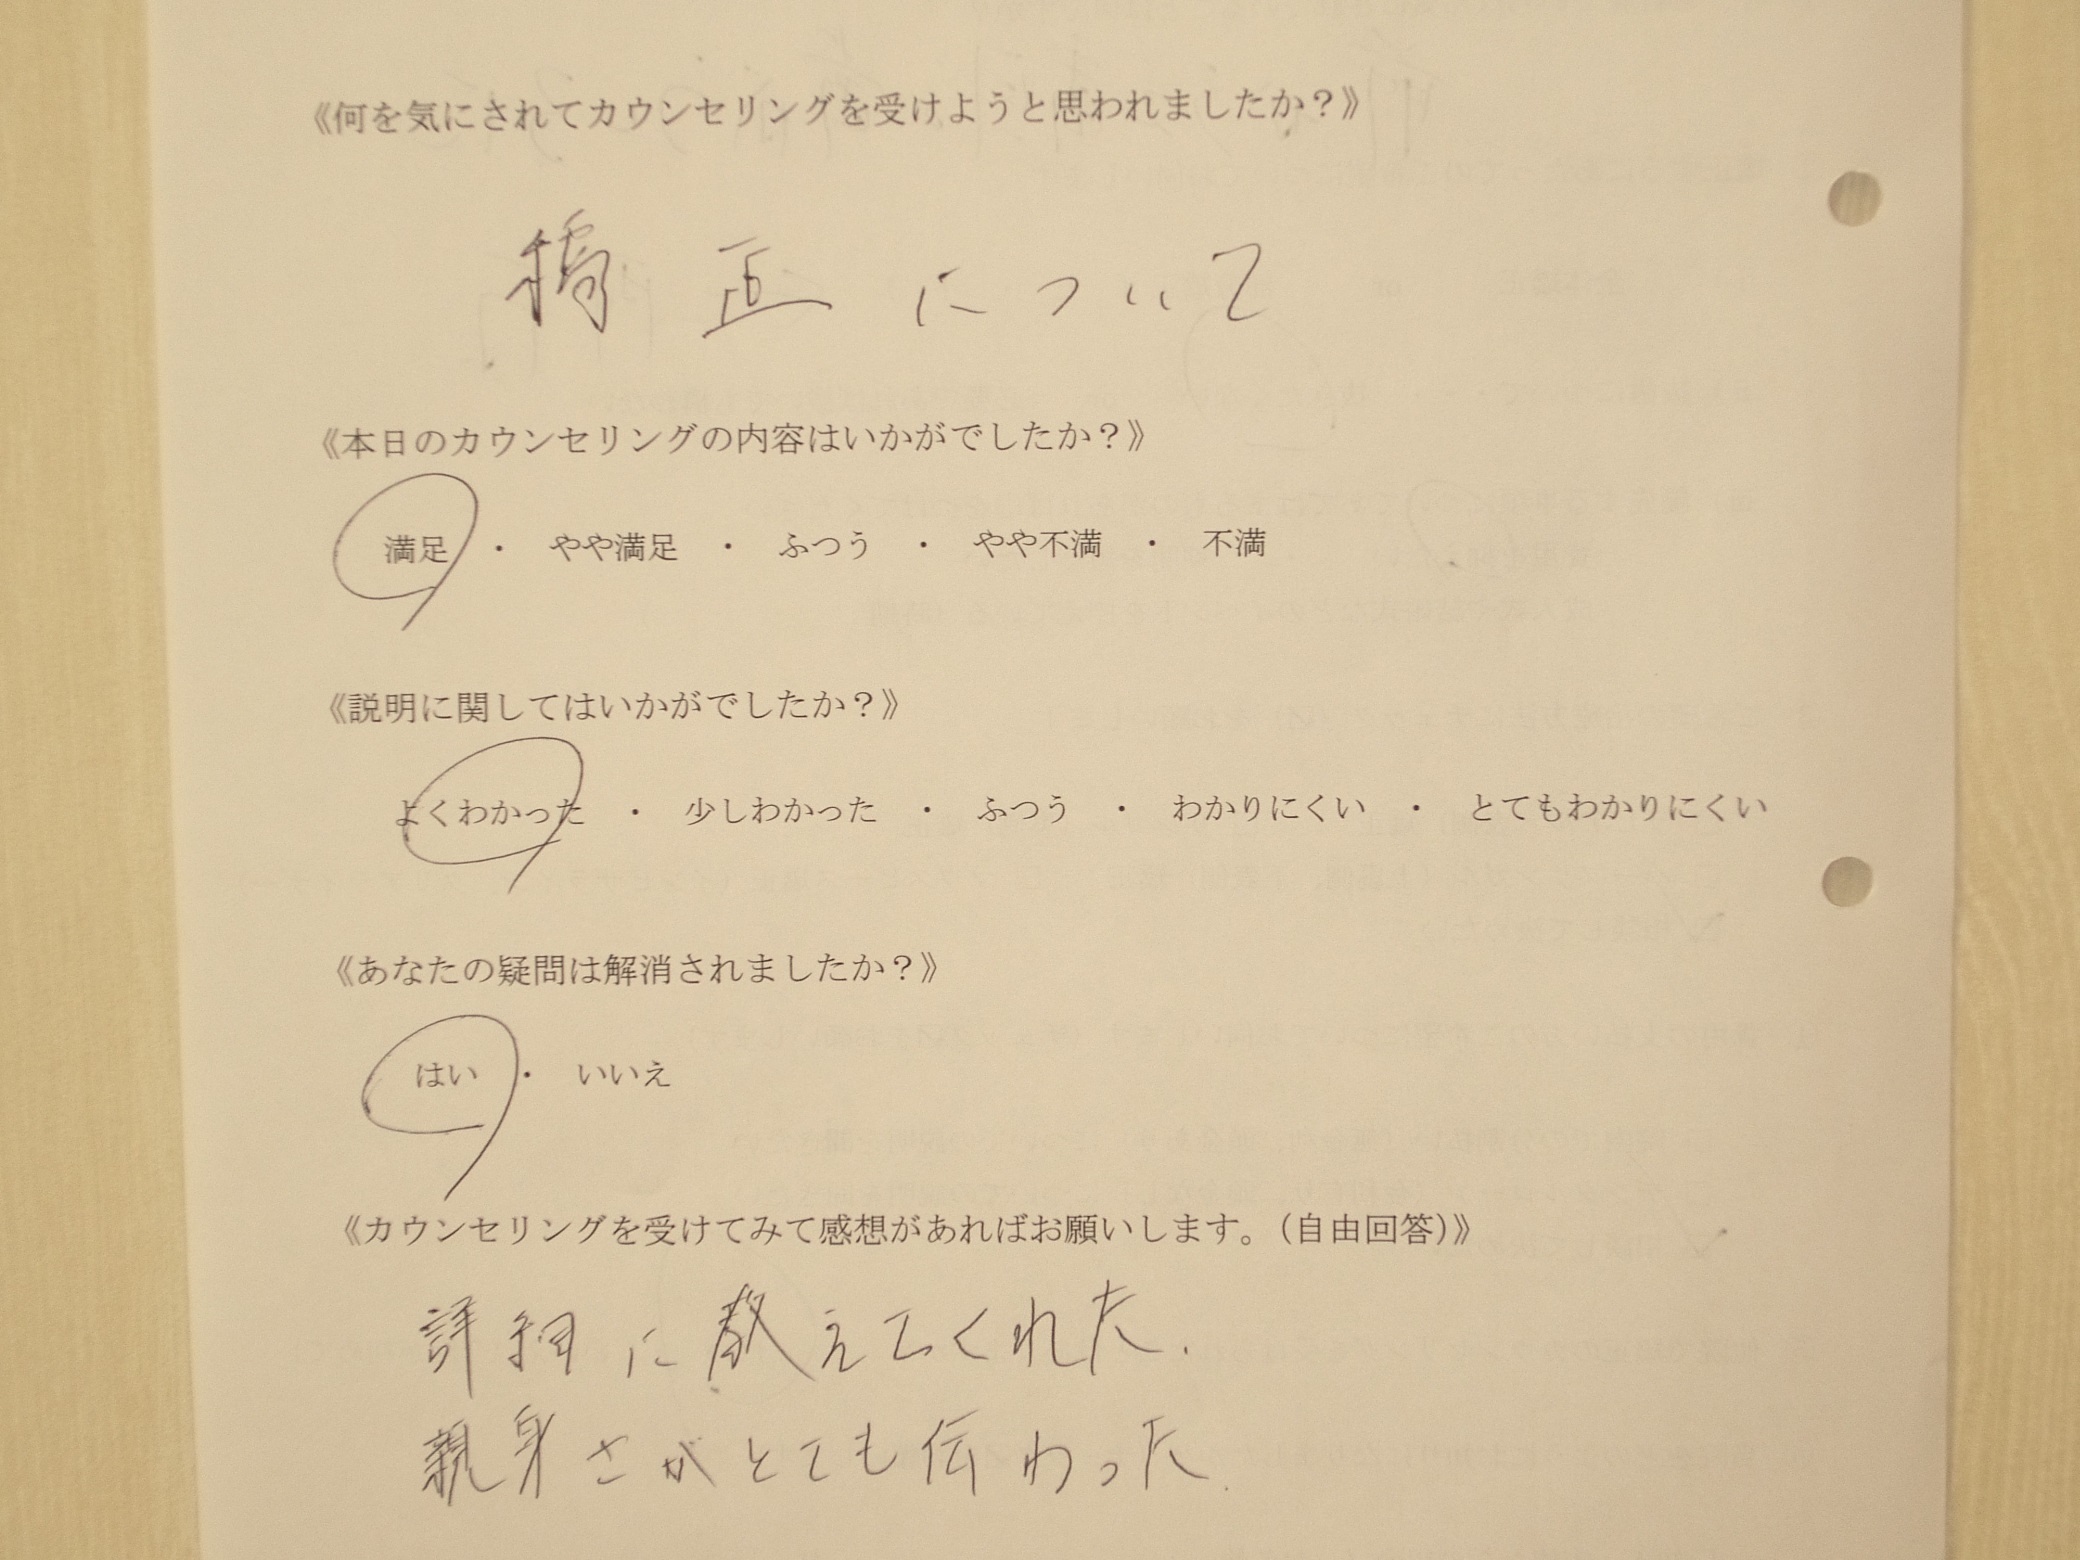 《何を気にされてカウンセリングを受けようと思われましたか？》
矯正について
《本日のカウンセリングの内容はいかがでしたか？》
満足 ・ やや満足 ・ ふつう ・ やや不満 ・ 不満
《説明に関してはいかがでしたか？》
よくわかった ・ 少しわかった ・ ふつう ・ わかりにくい ・ とてもわかりにくい
《あなたの疑問は解消されましたか？》
はい ・ いいえ
《カウンセリングを受けてみて感想があればお願いします。（自由回答）》
詳細に教えてくれた.
親身さがとても伝わった.